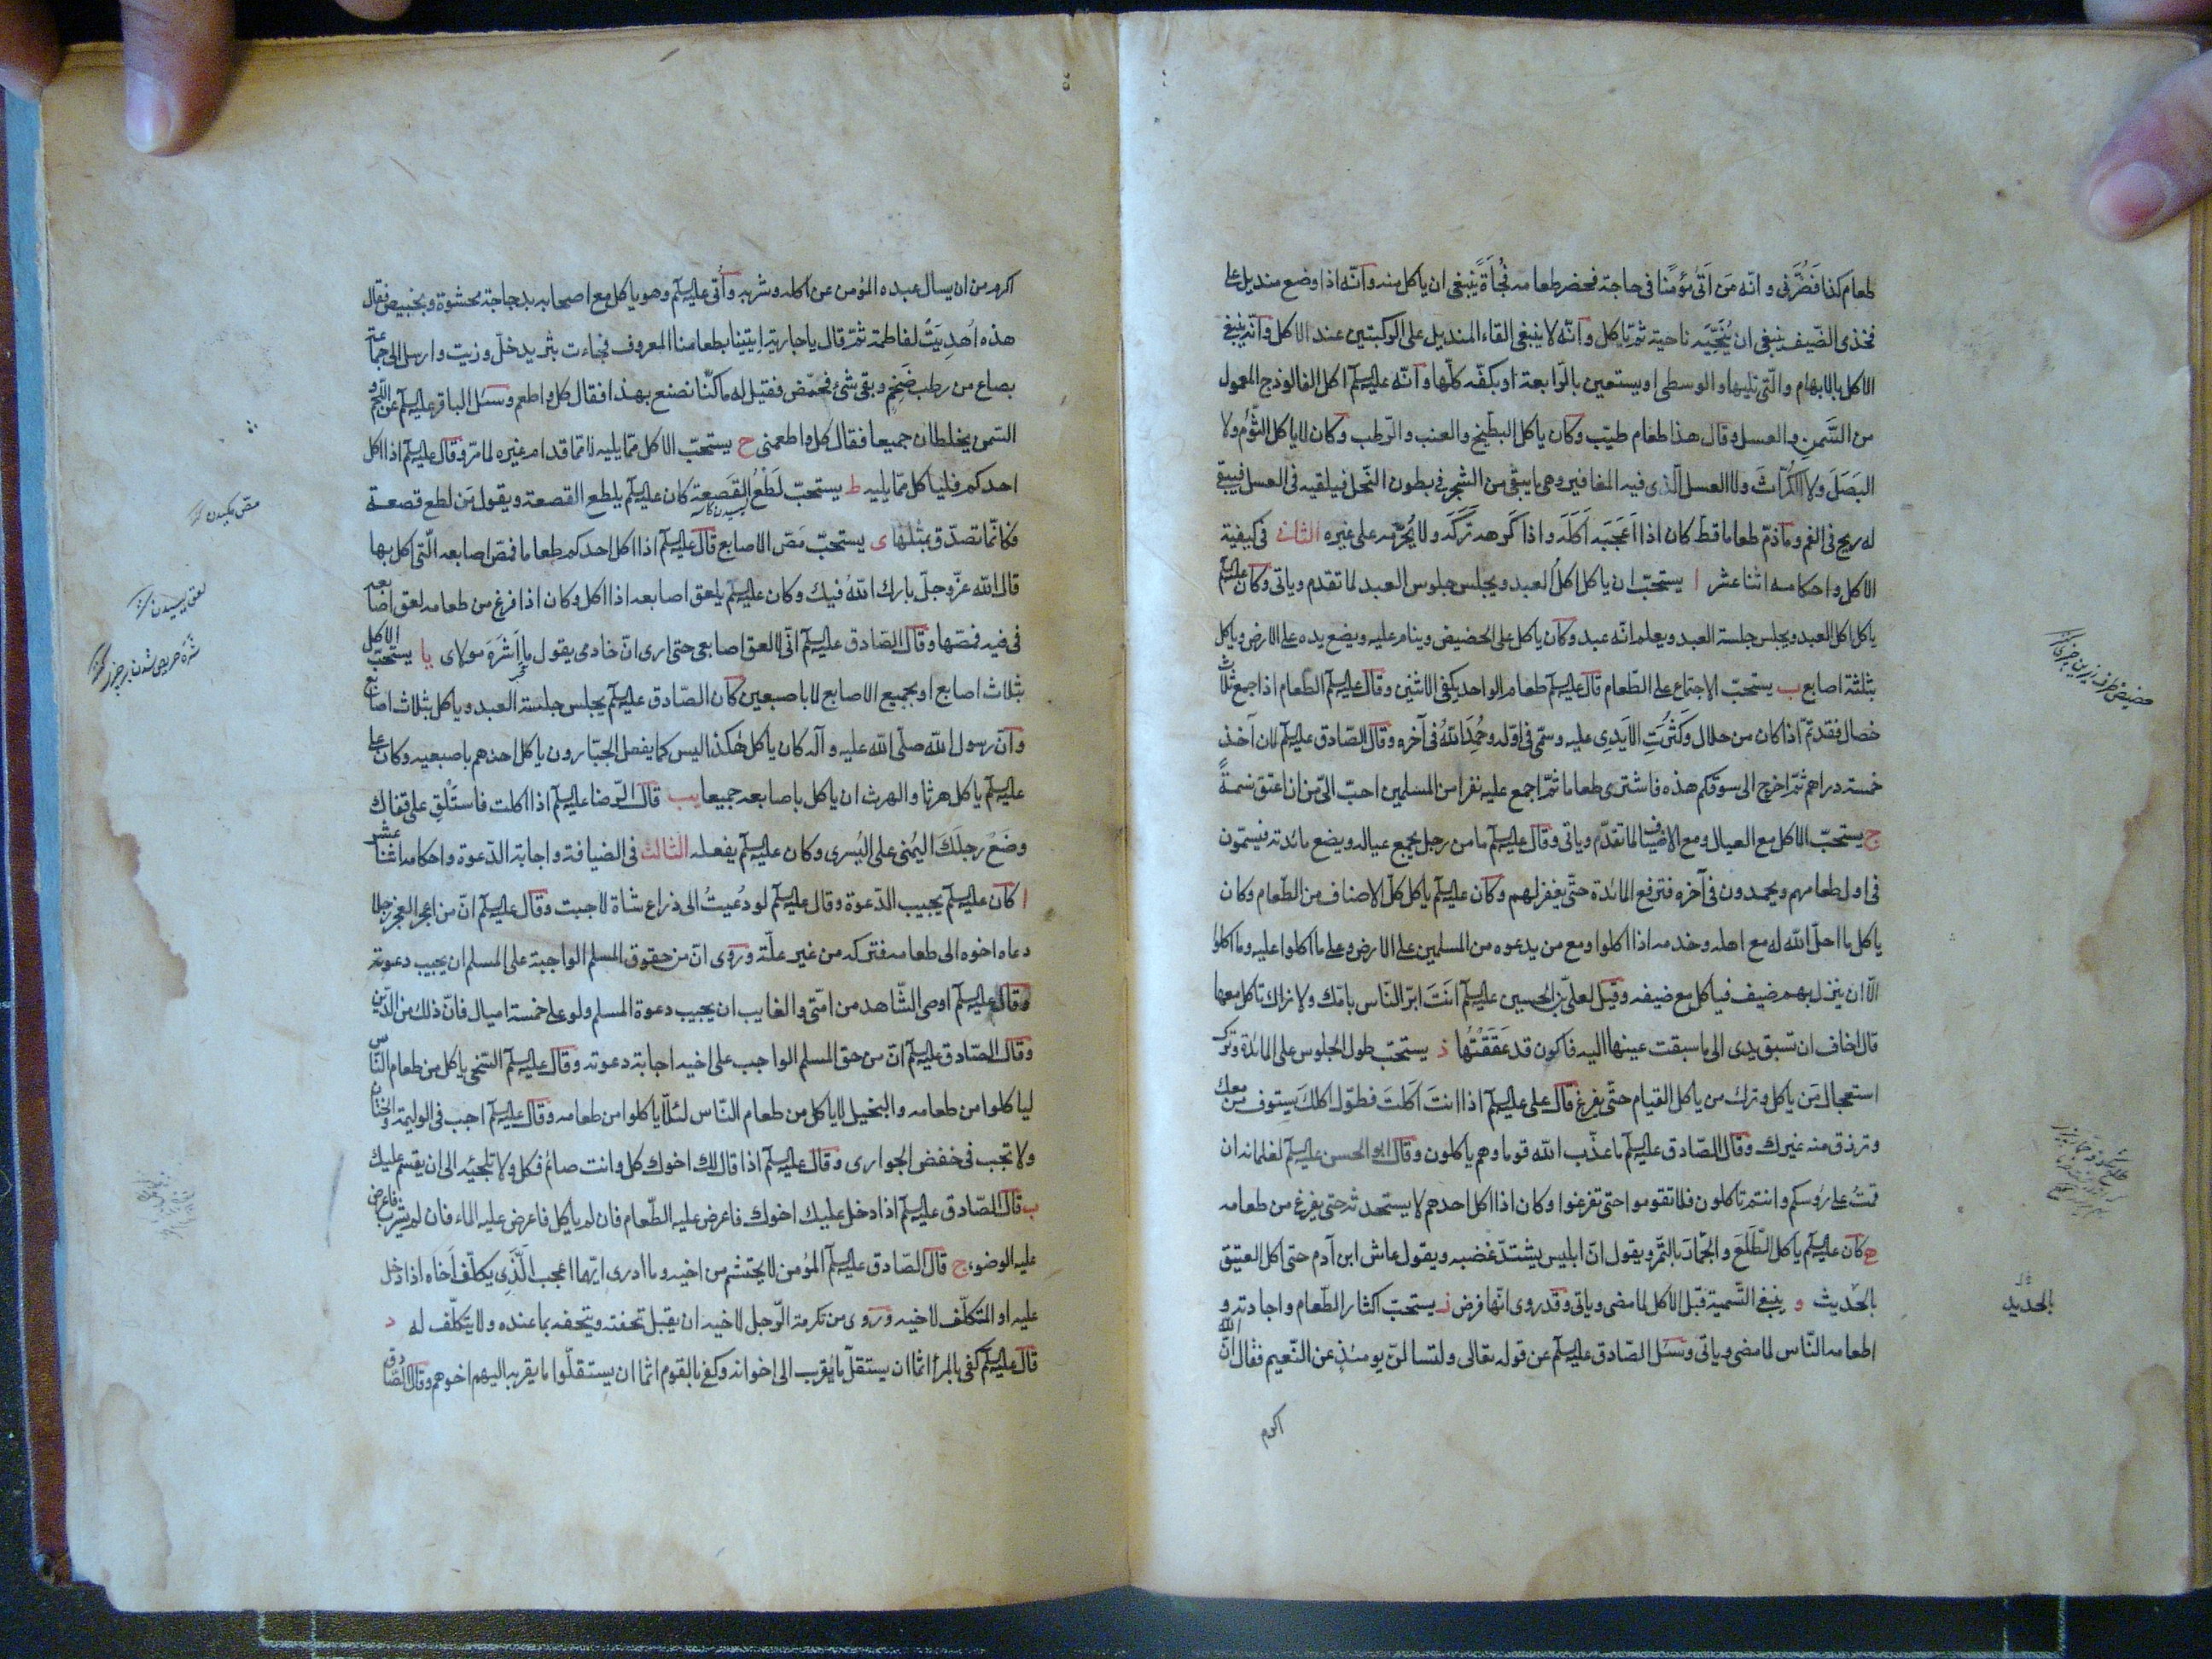 طعام كذا فضرّنى و انّه مَن اَتى مؤمنًا فى حاجة فحضر طعامه فُجْأةً ينبغى ان ياكل منه و انّه اذا وضع منديل على
فخذى الضّيف ينبغى ان يُنَحِّيَه ناحية ثمّ ياكل و انّه لا ينبغى القاء المنديل على الركبتين عند الاكل و انّه ينبغى
الاكل بالابهام و الّتى تليها و الوسطى او يستعين بالرّابعة او بكفّه كلّها و انّه عليه السلم اكل الفالوذج المعمول
من السَّمن و العسل و قال هذا طعام طيّب و كان ياكل البطّيخ و العنب و الرّطب و كان لا ياكل الثّوم و لا
البَصَلَ و لا الكُرّاثَ و لا العسل الّذى فيه المغافير و هى ما يبقى من الشّجر فى بطون النّحل فيلقيه فى العسل فيبقى
له ريح فى الفم و ما ذمّ طعاما قطّ كان اذا اَعْجَبَه اَكَلَه و اذا كرهه تَرَكَه و لا يُحَرِّمه على غيره الثانى فى كيفية
الاكل و احكامه اثنا عشر ا يستحبّ ان ياكل اكلُ العبد و يجلس جلوس العبد لما تقدم و ياتى و كان عليه السلم
ياكل اكل العبد و يجلس جلسة العبد و يعلم انّه عبد و كان ياكل على الحضيض و ينام عليه و يضع يده على الارض و ياكل
بثلثة اصابع ب يستحبّ الاجتماع على الطّعام قال عليه السلم طعام الواحد يكفى الاثنين و قال عليه السلم الطّعام اذا جمع ثلاث
خصال فقد تمّ اذا كان من حلال و كَثُرَتِ الاَيدِى عليه و سمّى فى اوّله و حُمِدَ اللّهُ فى آخره و قال الصّادق عليه السلم لان آخذ
خمسة دراهم ثمّ اخرج الى سوقكم هذه فاشترى طعاما ثمّ اجمع عليه نفرا من المسلمين احبّ الىّ من ان اعتق نسمةً
ج يستحبّ الاكل مع العيال و مع الاضياف لما تقدّم و ياتى و قال عليه السلم ما من رجل يجمع عياله و يضع مائدته فيسمّون
فى اول طعامهم و يحمدون فى آخره فترفع المائدة حتّى يغفر لهم و كان عليه السلم ياكل كلّ الاصناف من الطّعام و كان
ياكل ما احلّ اللّه له مع اهله و خدمه اذا اكلوا و مع من يدعوه من المسلمين على الارض و على ما اكلوا عليه و ما اكلوا
الّا ان ينزل بهم ضيف فياكل مع ضيفه و قيل لعلىّ بن الحسين عليه السلم انتَ ابرّ النّاس بامّك و لا نراك تاكل معها
قال اخاف ان تسبق يدى الى ما سبقت عينها اليه فاكون قد عَقَقْتُها د يستحبّ طول الجلوس على المائدة و ترك
استعجال مَن ياكل و ترك من ياكل القيام حتّى يفرغ قال على عليه السلم اذا انتَ اَكلتَ فطوّل اكلك يستوف من معك
و ترزق منه غيرك و قال الصّادق عليه السلم ما عذّب اللّه قوما و هم ياكلون و قال ابو الحسن عليه السلم لغلمانه ان
قمتُ على رُوسكم و انتم تاكلون فلا تقوموا حتى تفرغوا و كان اذا اكل احدهم لا يستخدمه حتى يفرغ من طعامه
ه كان عليه السلم ياكل الطّلعَ و الجُمّارَ بالتّمر و يقول انّ ابليس يشتدّ غضبه و يقول عاش ابن آدم حتى اكل العتيق
بالحديث و ينبغى التّسمية قبل الاكل لما مضى و ياتى و قد روى انّها فرض ز يستحبّ اكثار الطّعام و اجادته و
اطعامه النّاس لما مضى و ياتى و سئل الصّادق عليه السلم عن قوله تعالى و لتسالنّ يومئذٍ عن النّعيم فقال انّ اللّه
اكرم
بالحديد
اكرم من ان يسال عبده المؤمن عن اكله و شربه و اُتى عليه السلم و هو ياكل مع اصحابه بدجاجة محشوة و بخبيص فقال
هذه اُهدِيَتْ لفاطمة ثمّ قال يا جارية ايتينا بطعامنا المعروف فجاءت بثريد خلّ و زيت و ارسل الى جماعته
بصاع من رطب ضَخْم و بقى شئ فحمّض فقيل له ما كنّا نصنع بهذا فقال كل و اطعم و سئل الباقر عليه السلم عن اللّحم و
السّمن يخلطان جميعا فقال كل و اطعمنى ح يستحبّ الاكل ممّا يليه لا ممّا قدام غيره لما مرّ و قال عليه السلم اذا اكل
احدكم فلياكل ممّا يليه ط يستحبّ لَطْعُ القَصعة كان عليه السلم يلطع القصعة و يقول مَن لطع قصعة
فكانّما تصدّق بمثلها ى يستحبّ مَصّ الاصابع قال عليه السلم اذا اكل احدكم طعاما فمصّ اصابعه الّتى اكل بها
قال اللّه عزّ و جلّ بارك اللّهُ فيك و كان عليه السلم يلعق اصابعه اذا اكل و كان اذا فرغ من طعامه لعق اصابعه
فى فيه فمصّها و قال الصّادق عليه السلم انّى لالعق اصابعى حتى ارى انّ خادمى يقول ما اَشرَهَ مولاى يا يستحبّ الاكل
بثلاث اصابع او بجميع الاصابع لا باصبعين كان الصّادق عليه السلم يجلس جلسة العبد و ياكل بثلاث اصابع
و انّ رسول اللّه صلّى اللّه عليه و آله كان ياكل هكذا ليس كما يفعل الجبّارون ياكل احدهم باصبعيه و كان على
عليه السلم ياكل هرثا و الهرث ان ياكل باصابعه جميعا يب قال الرّضا عليه السلم اذا اكلت فاستَلْقِ على قفاك
و ضَعْ رِجلَكَ اليُمنى على اليُسرى و كان عليه السلم يفعله الثالث فى الضيافة و اجابة الدّعوة و احكامه اثنا عشر
ا كان عليه السلم يجيب الدّعوة و قال عليه السلم لو دُعيتُ الى ذراع شاة لاجبت و قال عليه السلم انّ من اعجز العجز رجلا
دعاه اخوه الى طعامه فتركه من غير علّة و روى انّ من حقوق المسلم الواجبة على المسلم ان يجيب دعوته
و قال عليه السلم اوصى الشّاهد من امّتى و الغايب ان يجيب دعوة المسلم و لو على خمسة اميال فانّ ذلك من الدّين
و قال الصّادق عليه السلم انّ من حق المسلم الواجب على اخيه اجابة دعوته و قال عليه السلم السّخى ياكل من طعام النّاس
لياكلوا من طعامه و البخيل لا ياكل من طعام النّاس لئلّا ياكلوا من طعامه و قال عليه السلم اجب فى الوليمة و الختان
و لا تجب فى خفض الجوارى و قال عليه السلم اذا قال لك اخوك كل و انت صائم فكل و لا تلجئه الى ان يقسم عليك
ب قال الصّادق عليه السلم اذا دخل عليك اخوك فاعرض عليه الطّعام فان لم ياكل فاعرض عليه الماء فان لم يشرب فاعرض
عليه الوضوء ج قال الصّادق عليه السلم المؤمن لا يحتشم من اخيه و ما ادرى ايّهما اعجب الَّذِى يكلّف اَخاه اذا دخل
عليه او المتكلّف لاخيه و روى من تكرمة الرّجل لاخيه ان يقبل تحفته و يتحفه بما عنده و لا يتكلّف له د
قال عليه السلم كفى بالمرأ اثما ان يستقلّ ما يُقرب الى اخوانه و كفى بالقوم اثما ان يستقلّوا ما يقربه اليهم اخوهم و قال الصّادق
مصّ مكيدن
لعق ليسيدن
شره حريص شدن بر چيز